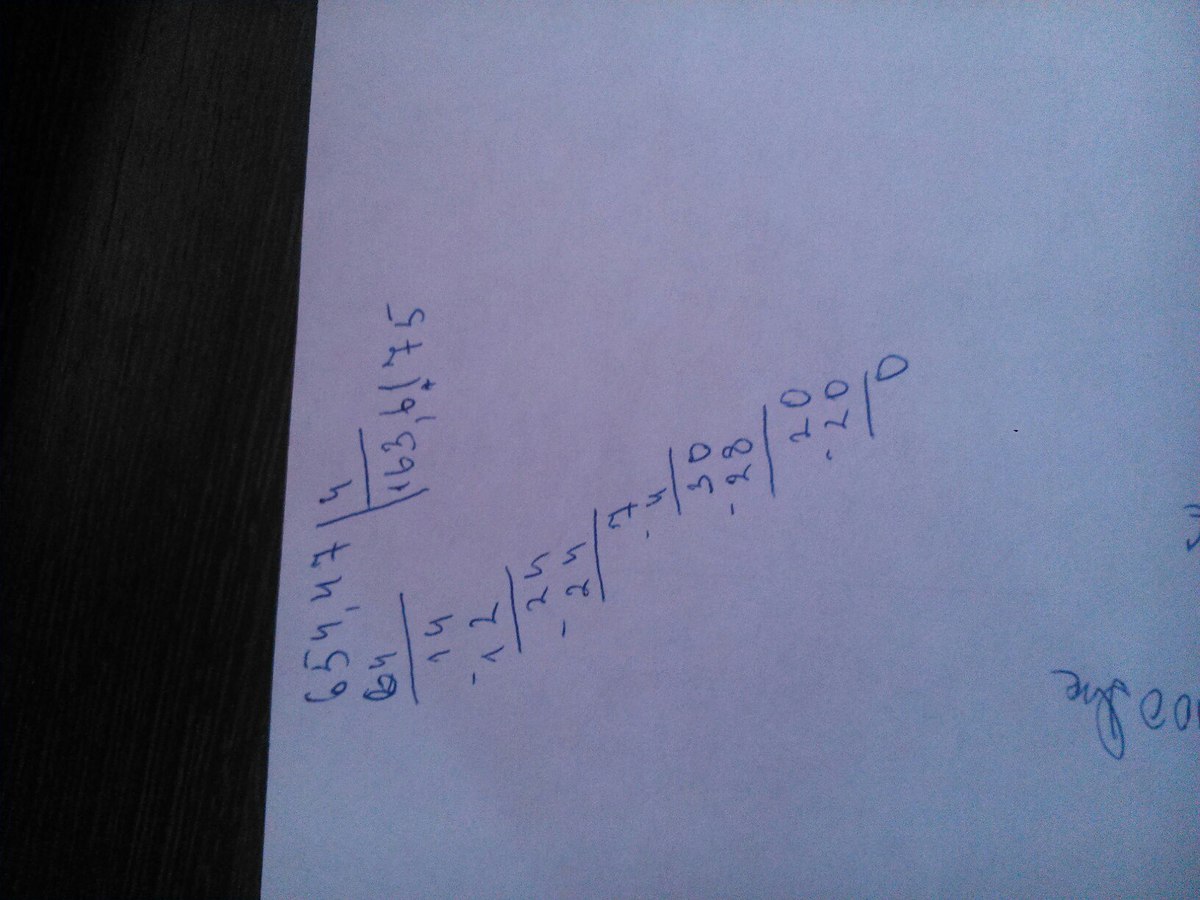 654,47 | 4
64 163,6175
14
-12
24
-24
7
-4
30
-28
20
-20
0